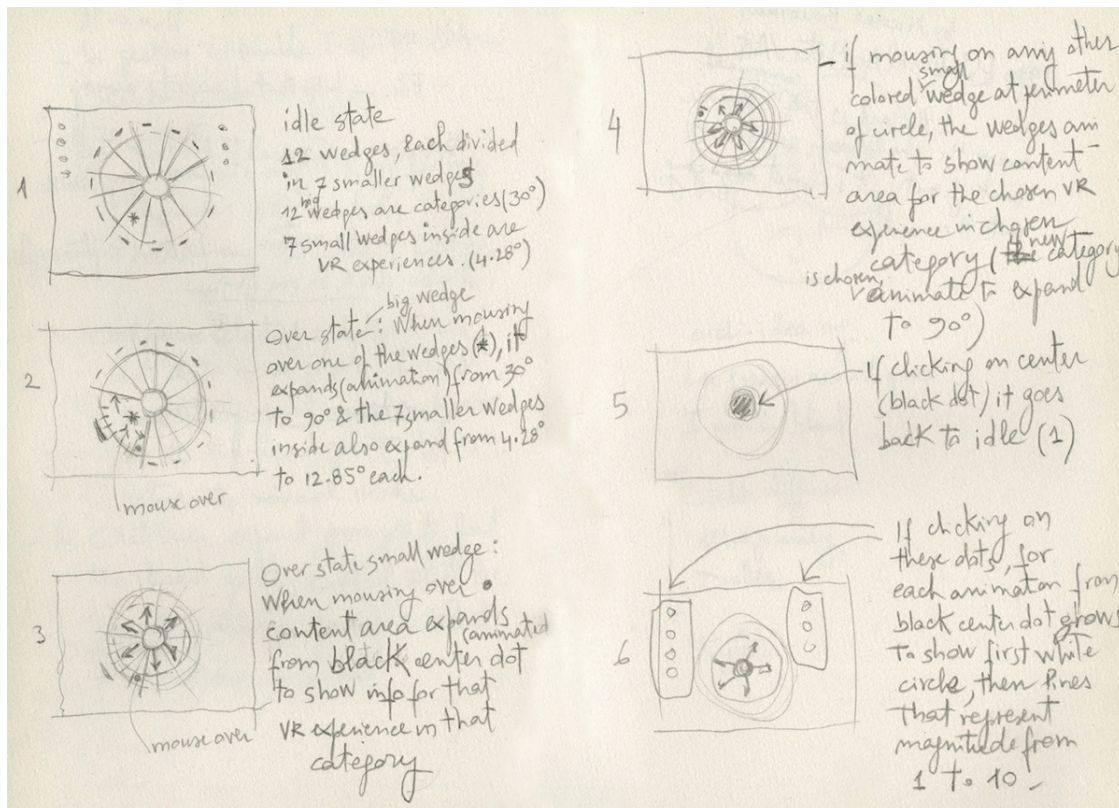 1
idle state
12 wedges, Each divided
in 7 smaller wedges
12 big wedges are categories (30°)
7 small wedges inside are
VR experiences. (4.28°)
2
Over state big wedge: When mousing
over one of the wedges (*), it
expands (animation) from 30°
to 90° & the 7 smaller wedges
inside also expand from 4.28°
to 12.85° each.
mouse over
3
Over state small wedge:
When mousing over •
content area expands (animated
from black center dot
to show info for that
VR experience in that
category
mouse over
4
- if mousing on any other
colored small wedge at perimeter
of circle, the wedges ani
mate to show content
area for the chosen VR
experience in chosen
category (if new category
is chosen, animate to expand
to 90°)
5
If clicking on center
(black dot) it goes
back to idle (1)
6
If clicking on
these dots, for
each animation from
black center dot grows
to show first white
circle, then lines
that represent
magnitude from
1 to 10 -